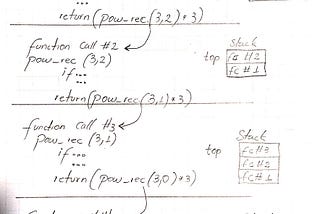 ...
return(pow_rec(3,2)*3)
function call #2
pow_rec (3,2)
if ...
top
Stack
fc #2
fc #1
return(pow_rec(3,1)*3)
function call #3
pow_rec (3,1)
if ...
top
Stack
fc#3
fc#2
fc#1
return(pow_rec(3,0)*3)